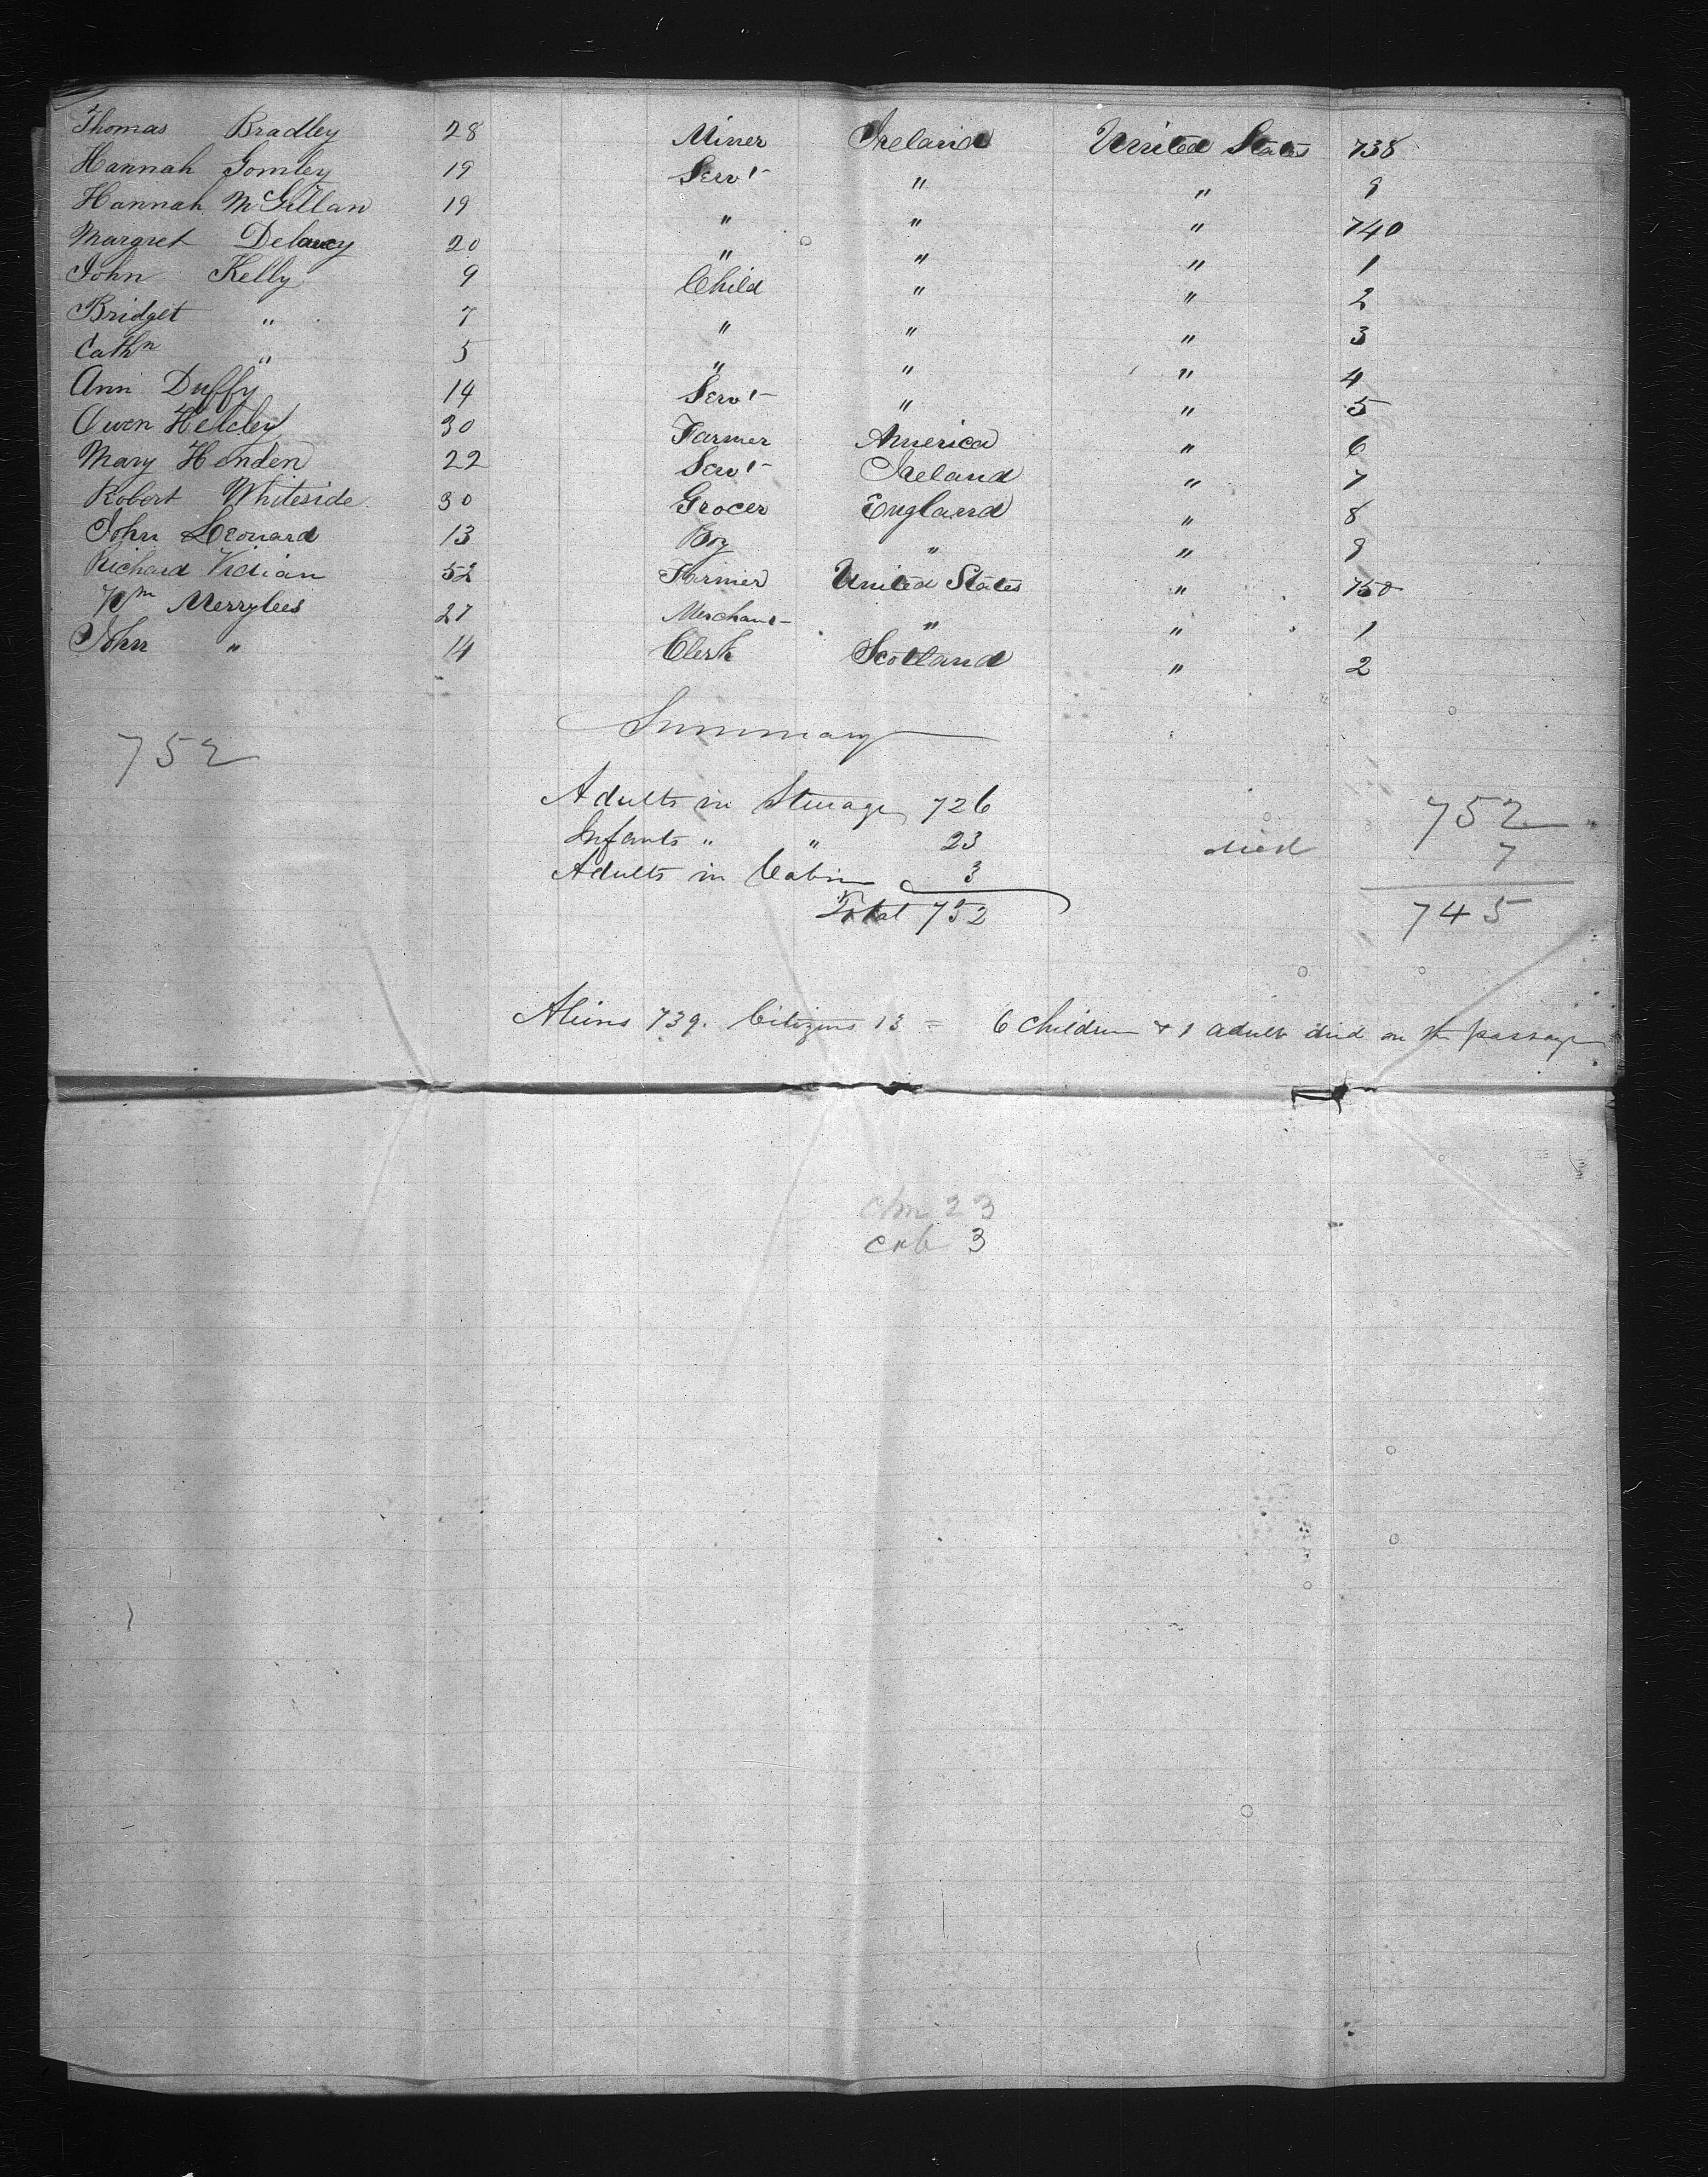 Thomas Bradley 28 Miner Ireland United States 738
Hannah Gomley 19 Servt " " 9
Hannah McGillan 19 " " " 740
Margret Delancy 20 " " " 1
John Kelly 9 Child " " 2
Bridget " 7 " " " 3
Cathn " 5 " " " 4
Ann Duffy 14 Servt " " 5
Owen 30 Farmer America " 6
Mary Henden 22 Servt Ireland " 7
Robert Whiteside 30 Grocer England " 8
John Leonard 13 Boy " " 9
Richard Vidian 52 Farmer United States " 750
Wm Merrylees 27 Merchant " " 1
John " 14 Clerk Scotland " 2
Summary
752
Adults in Sturage 726 752
Infants " " 23 died 7
Adults in Cabin 3
Total 752 745
Aliens 739. Citizens 13 = 6 children + 1 adult died on the passage
chn 23
cab 3